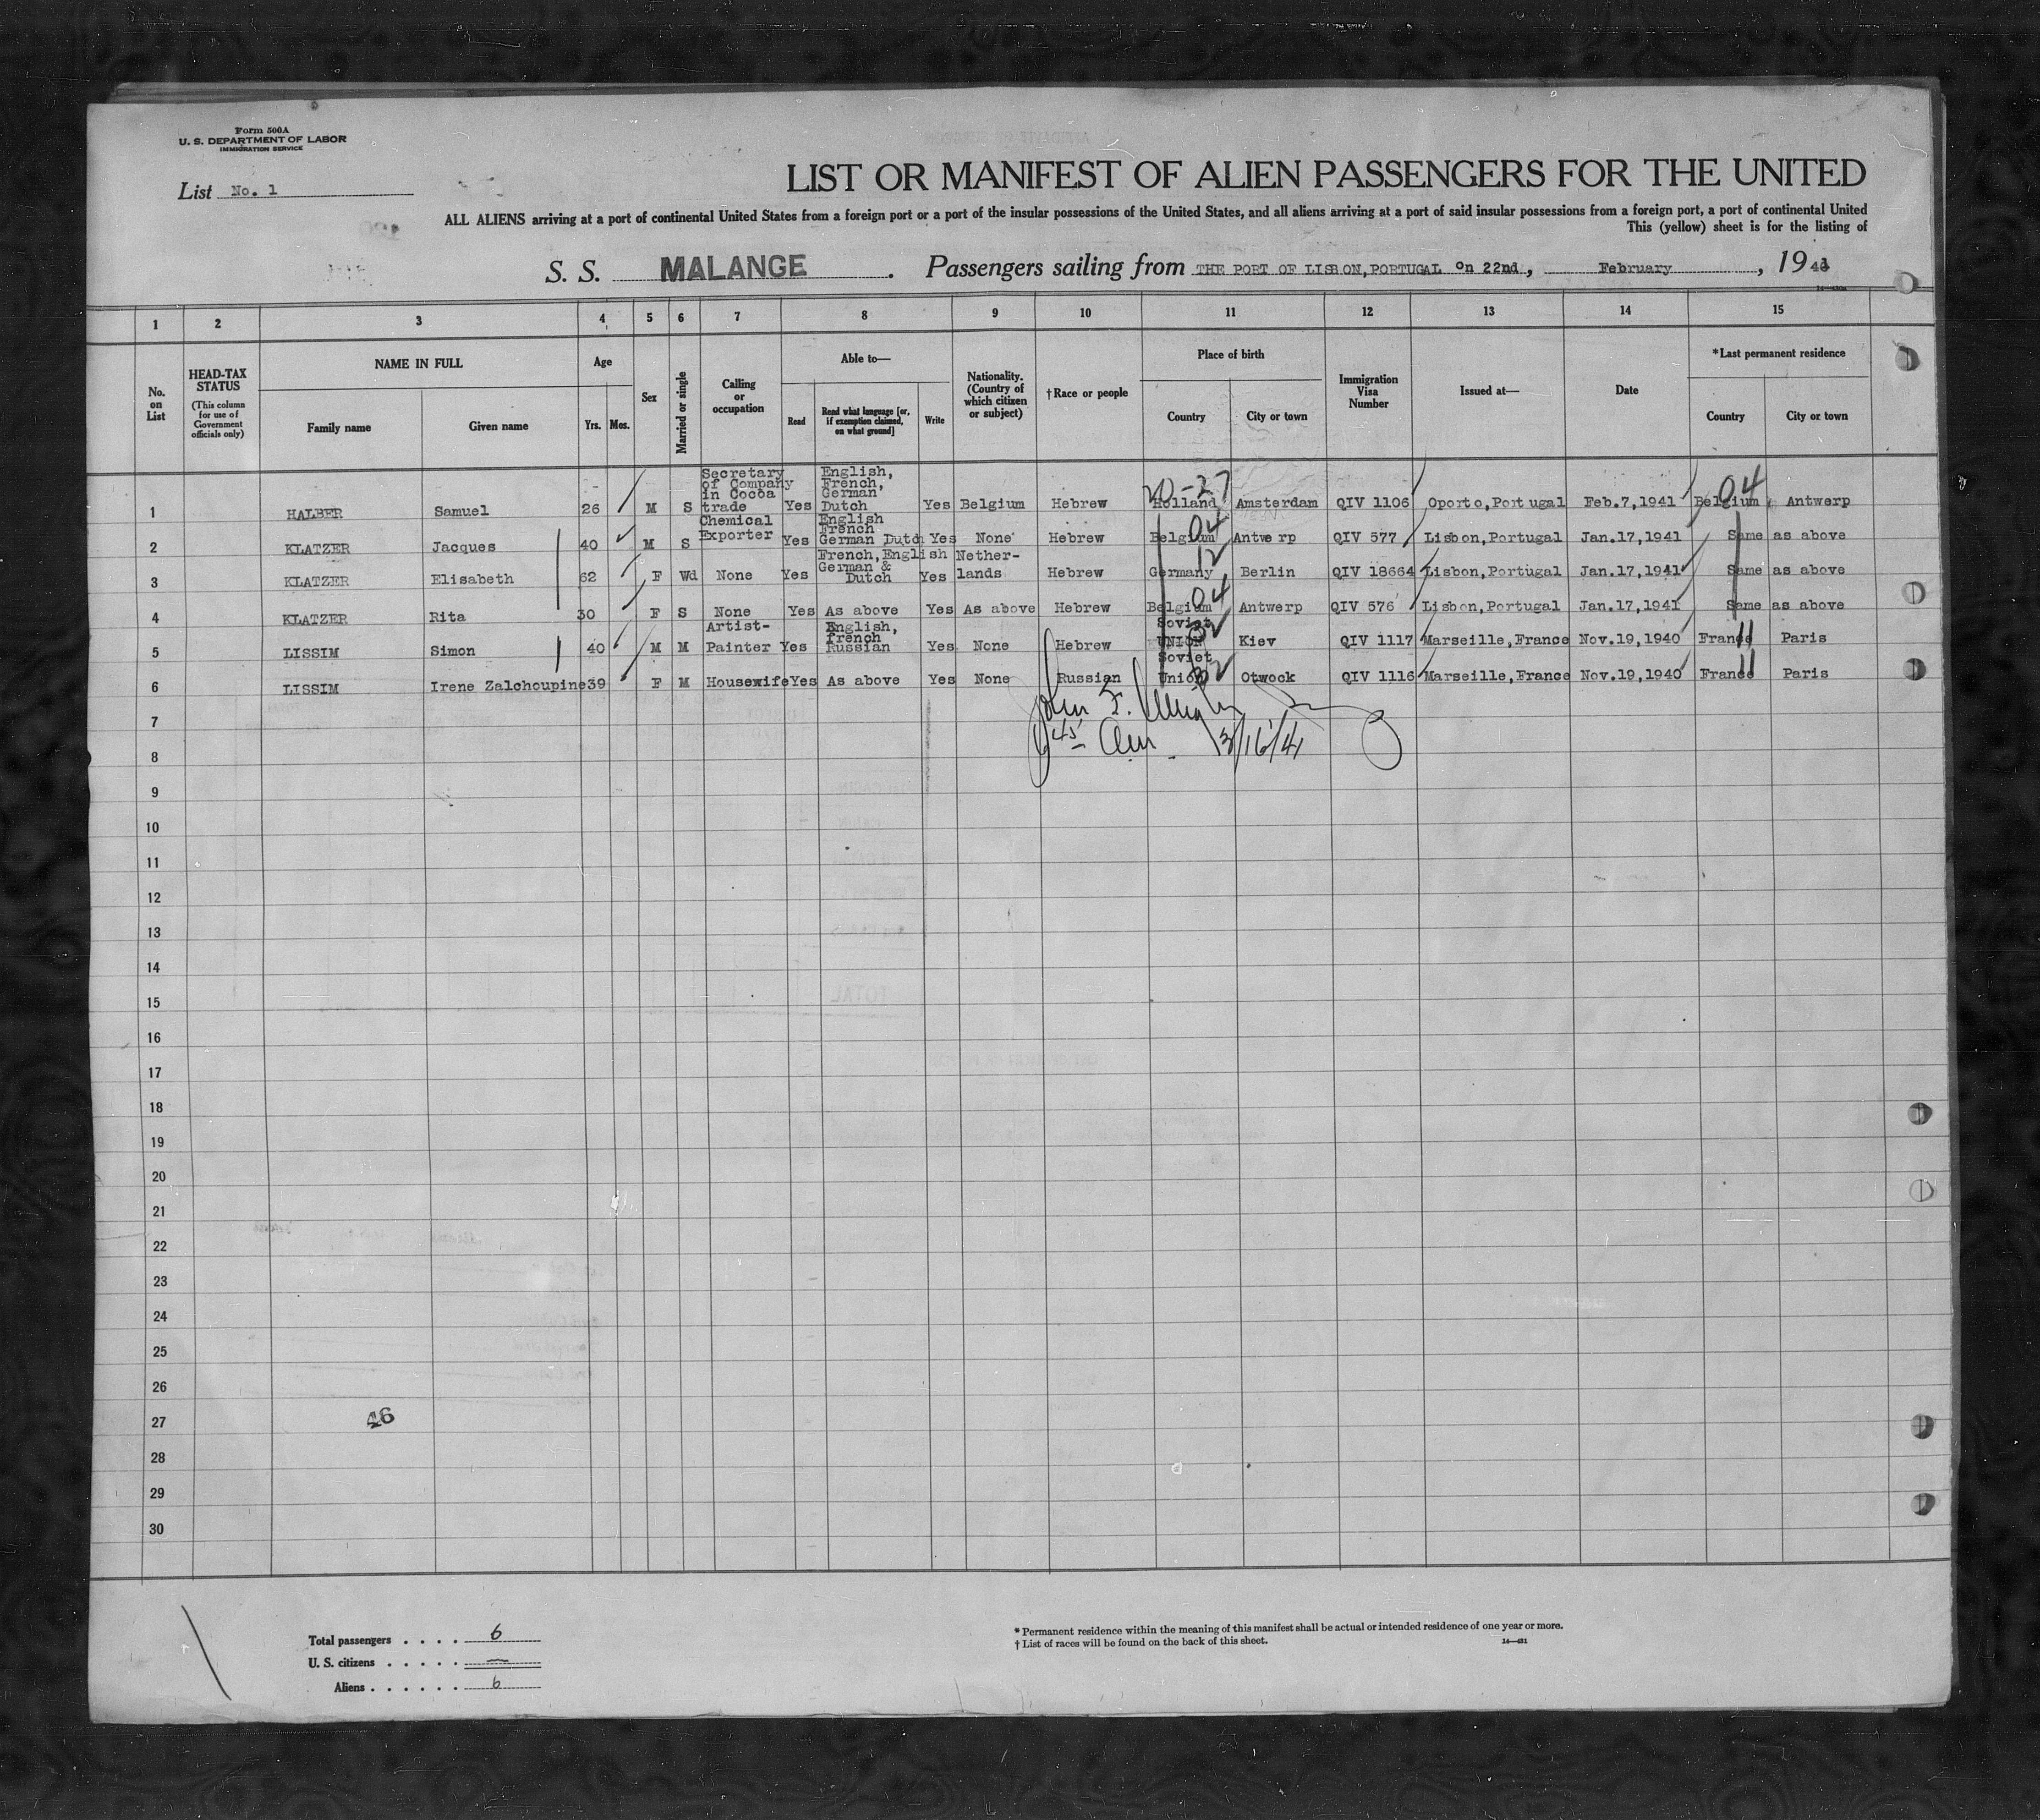 Form 500A
U. S. DEPARTMENT OF LABOR
IMMIGRATION SERVICE
List No. 1
LIST OR MANIFEST OF ALIEN PASSENGERS FOR THE UNITED
ALL ALIENS arriving at a port of continental United States from a foreign port or a port of the insular possessions of the United States, and all aliens arriving at a port of said insular possessions from a foreign port, a port of continental United
This (yellow) sheet is for the listing of
S. S. MALANGE . Passengers sailing from THE PORT OF LISBON, PORTUGAL on 22nd , February , 1941
1 2 3 4 5 6 7 8 9 10 11 12 13 14 15
No. on List
HEAD-TAX STATUS (This column for use of Government officials only)
NAME IN FULL
Family name Given name
Age
Yrs. Mos.
Sex
Married or single
Calling or occupation
Able to—
Read
Read what language [or, if exemption claimed, on what ground]
Write
Nationality. (Country of which citizen or subject)
†Race or people
Place of birth
Country City or town
Immigration Visa Number
Issued at—
Date
*Last permanent residence
Country City or town
1 HALBER Samuel 26 M S Secretary of Company in Cocoa trade Yes English, French, German Dutch Yes Belgium Hebrew Holland Amsterdam QIV 1106 Oporto, Portugal Feb.7,1941 Belgium, Antwerp
20-27 04
2 KLATZER Jacques 40 M S Chemical Exporter Yes English French German Dutch Yes None Hebrew Belgium Antwerp QIV 577 Lisbon, Portugal Jan.17,1941 Same as above
04
3 KLATZER Elisabeth 62 F Wd None Yes French, English German & Dutch Yes Nether-lands Hebrew Germany Berlin QIV 18664 Lisbon, Portugal Jan.17,1941 Same as above
12
4 KLATZER Rita 30 F S None Yes As above Yes As above Hebrew Belgium Antwerp QIV 576 Lisbon, Portugal Jan.17,1941 Same as above
04
5 LISSIM Simon 40 M M Artist-Painter Yes English, french Russian Yes None Hebrew Soviet UNION Kiev QIV 1117 Marseille, France Nov.19,1940 France Paris
32 11
6 LISSIM Irene Zalchoupine 39 F M Housewife Yes As above Yes None Russian Soviet Union Otwock QIV 1116 Marseille, France Nov.19,1940 France Paris
32 11
John F.
3/16/41
7
8
9
10
11
12
13
14
15
16
17
18
19
20
21
22
23
24
25
26
27
46
28
29
30
Total passengers . . . . 6
U. S. citizens . . . . . —
Aliens . . . . . . 6
* Permanent residence within the meaning of this manifest shall be actual or intended residence of one year or more.
† List of races will be found on the back of this sheet.
14—421